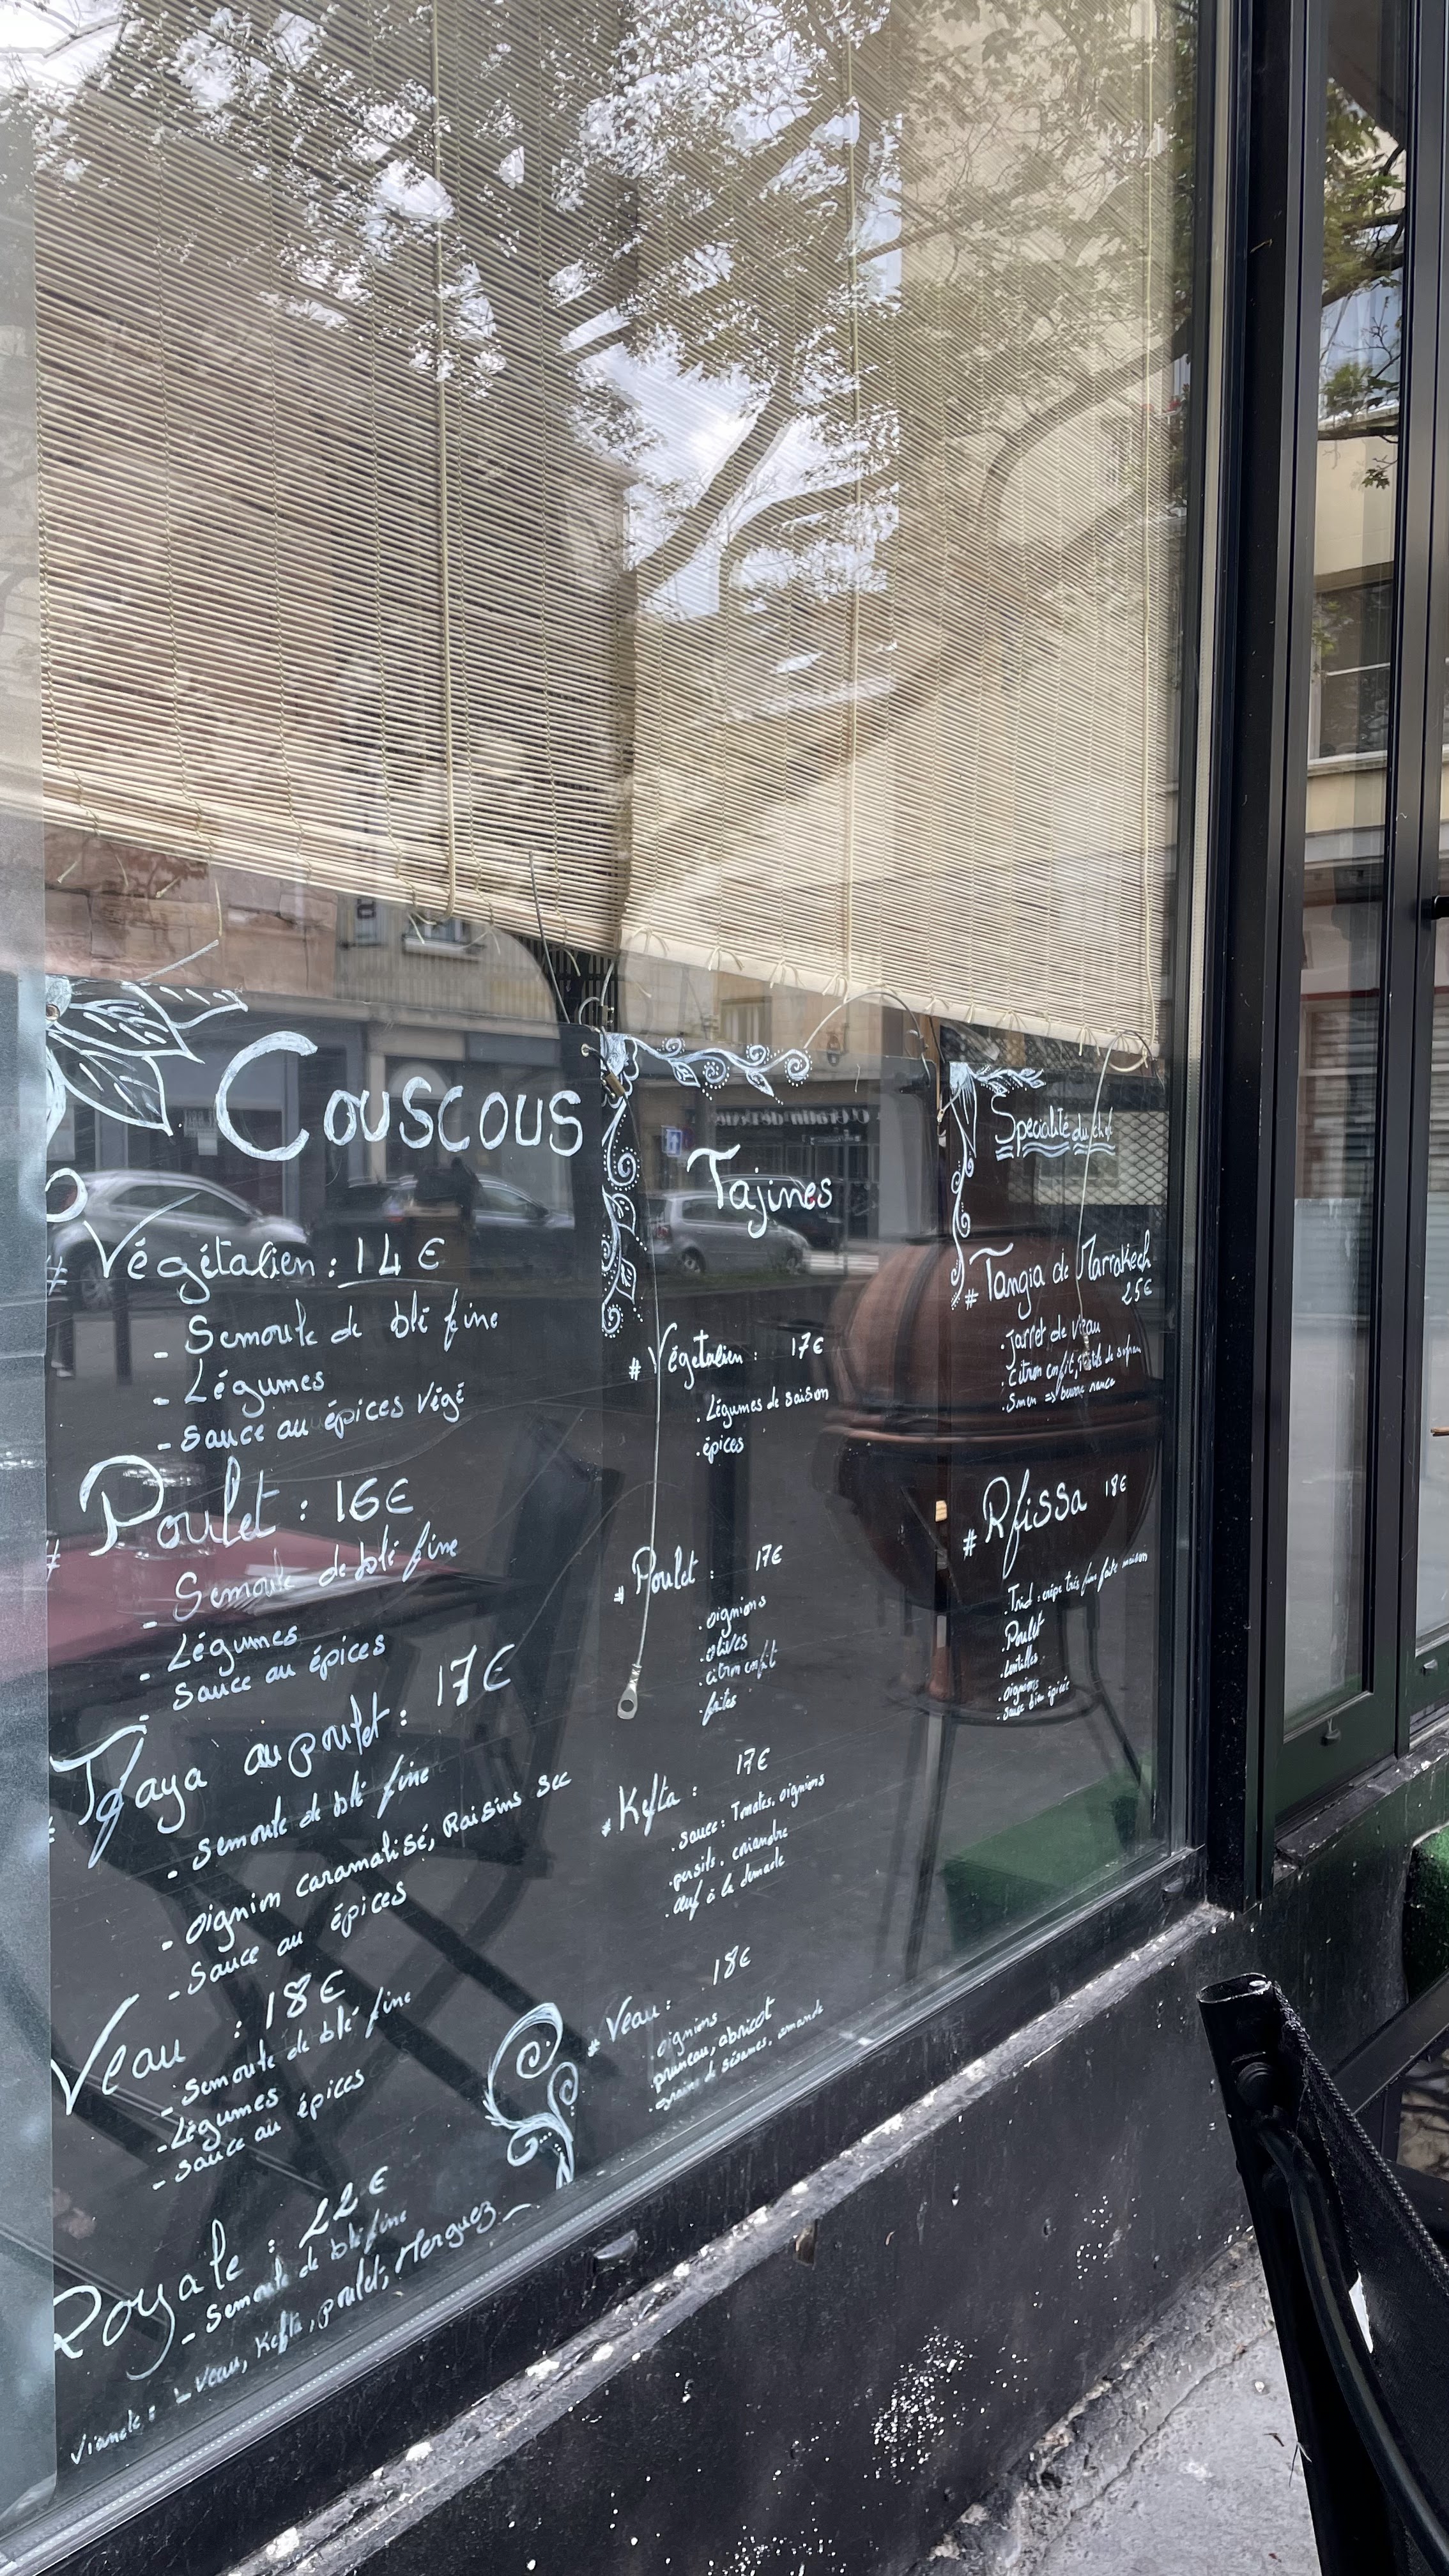 Couscous
# Végétalien : 14 €
- Semoule de blé fine
- Légumes
- Sauce au épices végé
# Poulet : 16€
- Semoule de blé fine
- Légumes
- Sauce au épices
# Tfaya au poulet : 17€
- Semoule de blé fine
- oignion caramalisé, Raisins sec
- Sauce au épices
Veau : 18€
- Semoule de blé fine
- Légumes
- Sauce au épices
Royale : 22€
- Semoule de blé fine
Viande : Veau, Kefta, poulet, Merguez
Tajines
# Végetalien : 17€
. Légumes de saison
. épices
# Poulet : 17€
. oignions
. olives
. citron confit
. frites
# Kefta : 17€
. sauce : Tomates, oignions
. persils, coriandre
. œuf à la demade
# Veau : 18€
. oignions
. pruneau, abricot
. graine de sésames, amande
Specialité du chef
# Tangia de Marrakech
25€
. Jarret de veau
. Citron confit, de safran
. Smen => beurre rance
# Rfissa 18€
. Trid : crêpe très fine faite maison
. Poulet
. lentilles
. oignions
. sauce bien épicée